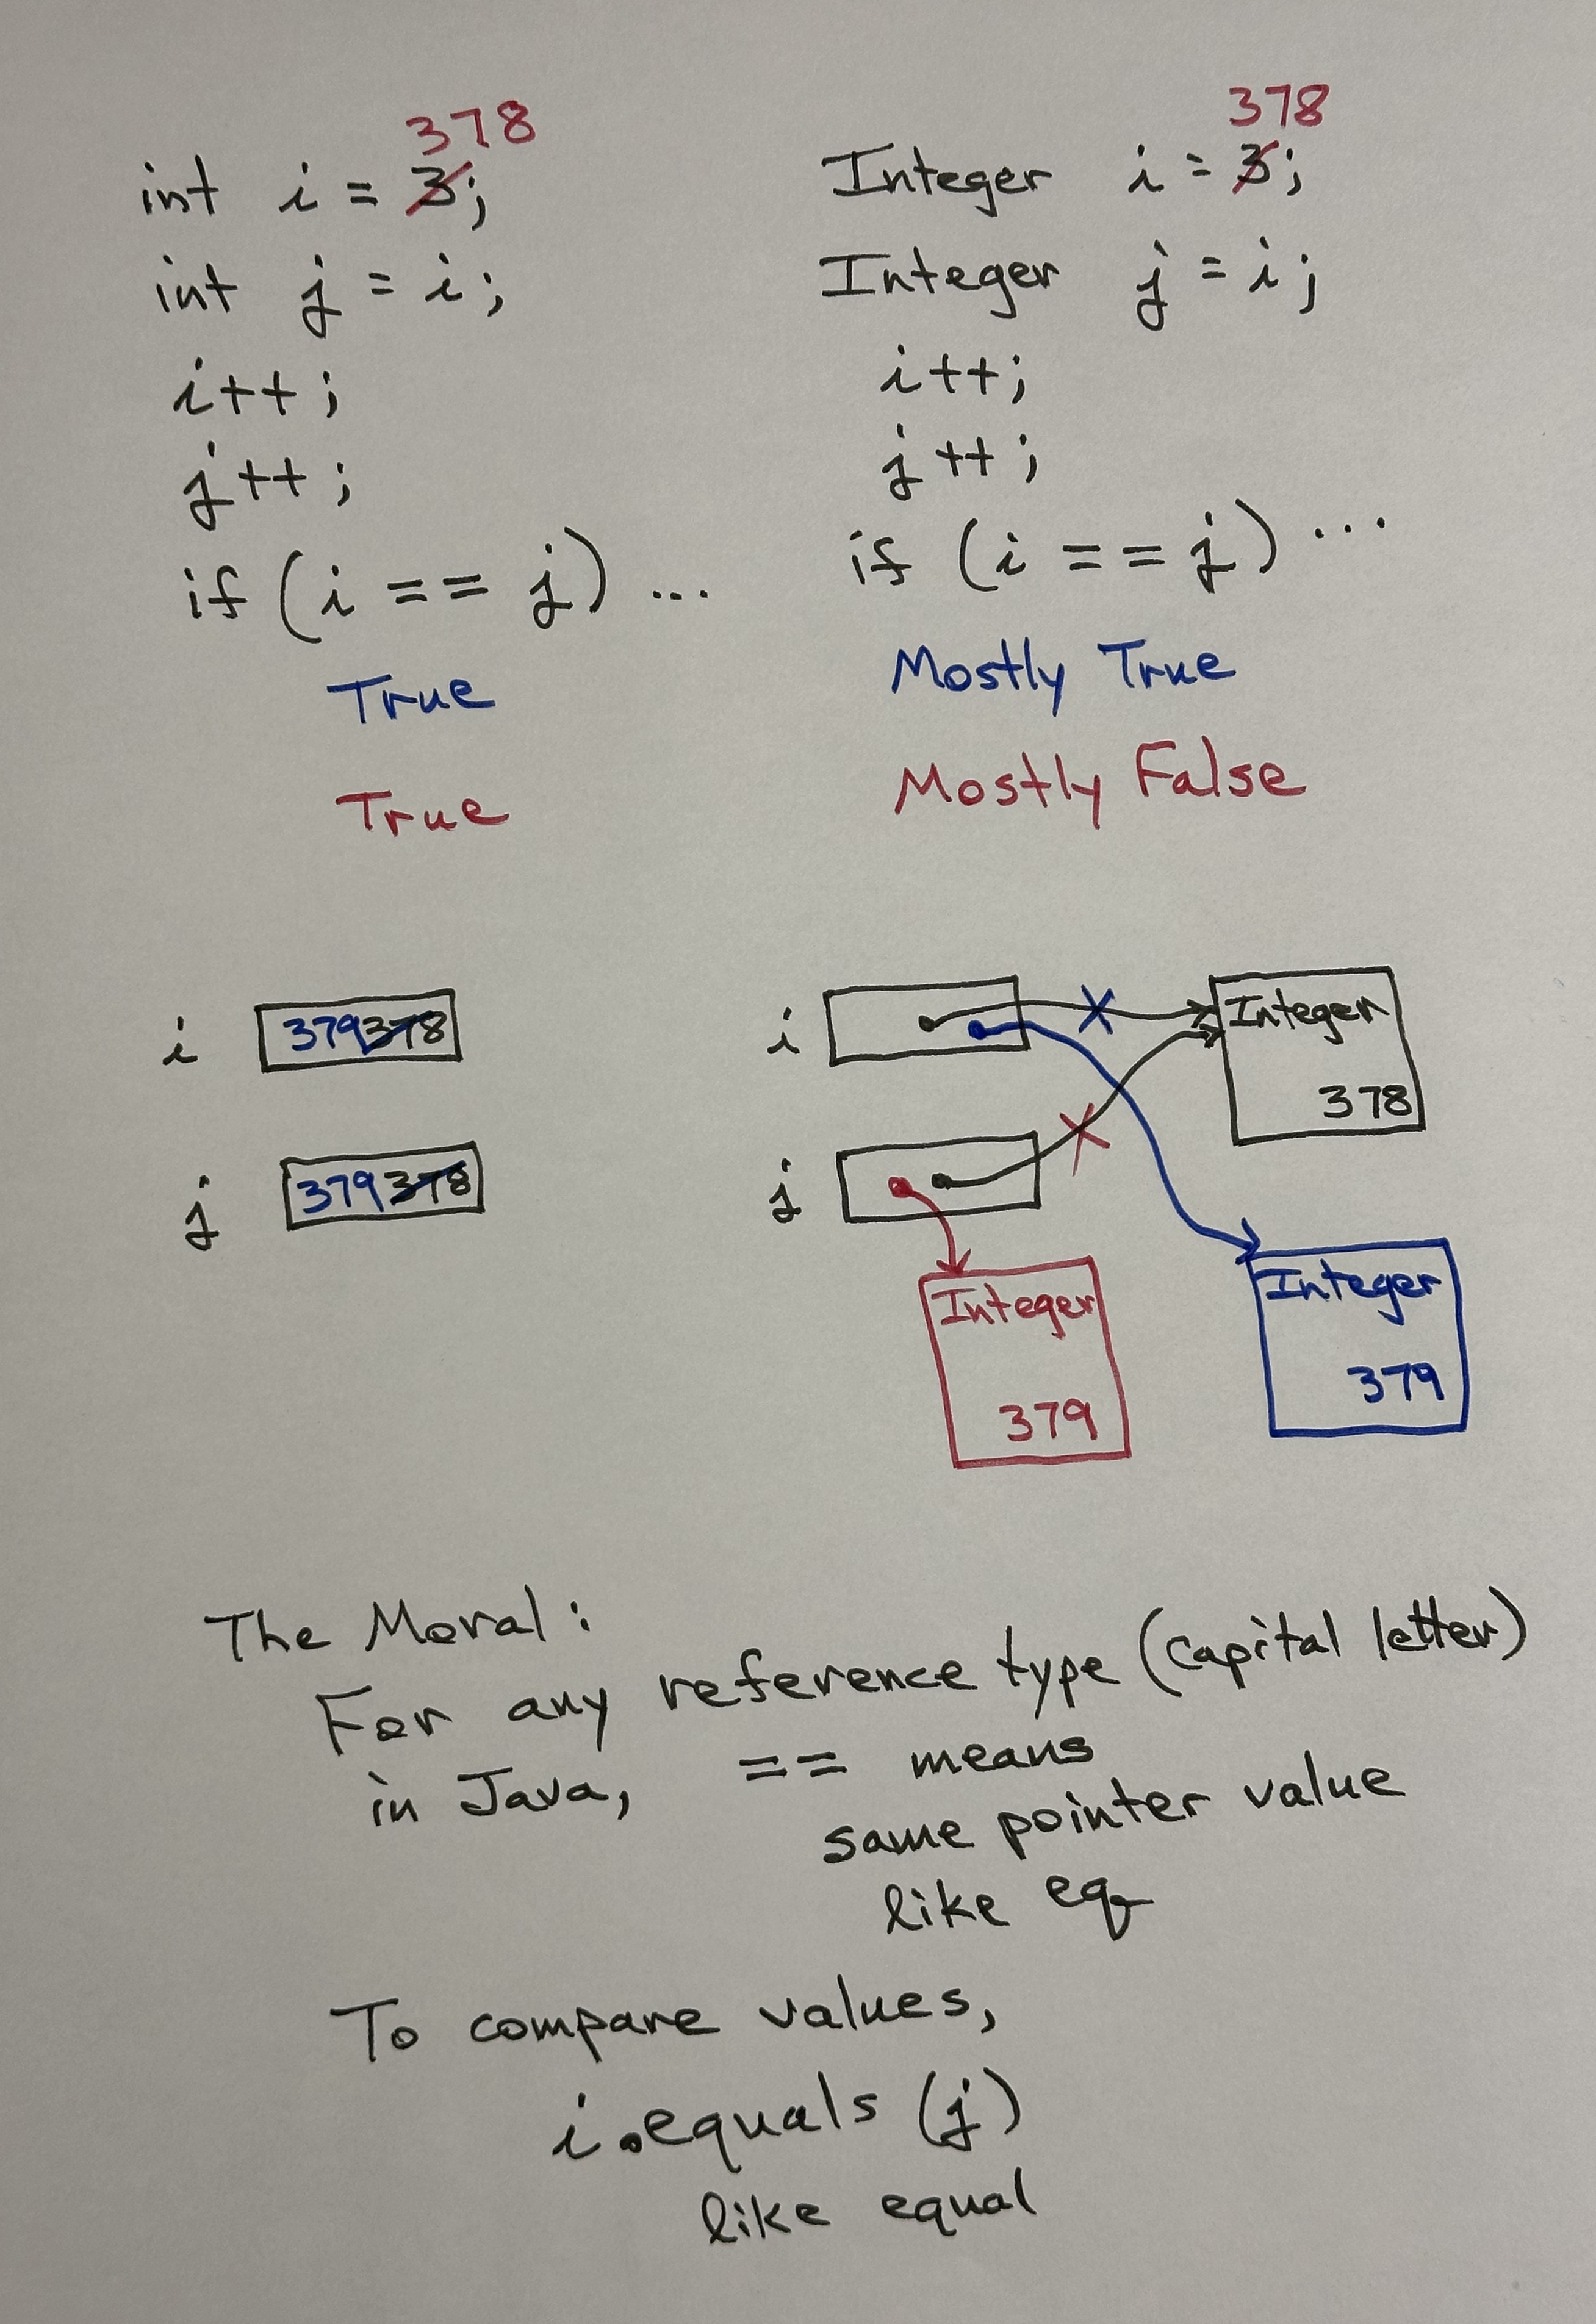 378
int i = 3;
int j = i;
i++;
j++;
if (i == j) ...
True
True
378
Integer i = 3;
Integer j = i;
i++;
j++;
if (i == j) ...
Mostly True
Mostly False
i 379 378
j 379 378
i
Integer
378
j
Integer
379
Integer
379
The Moral:
For any reference type (capital letter)
in Java, == means
same pointer value
like eq
To compare values,
i.equals (j)
like equal